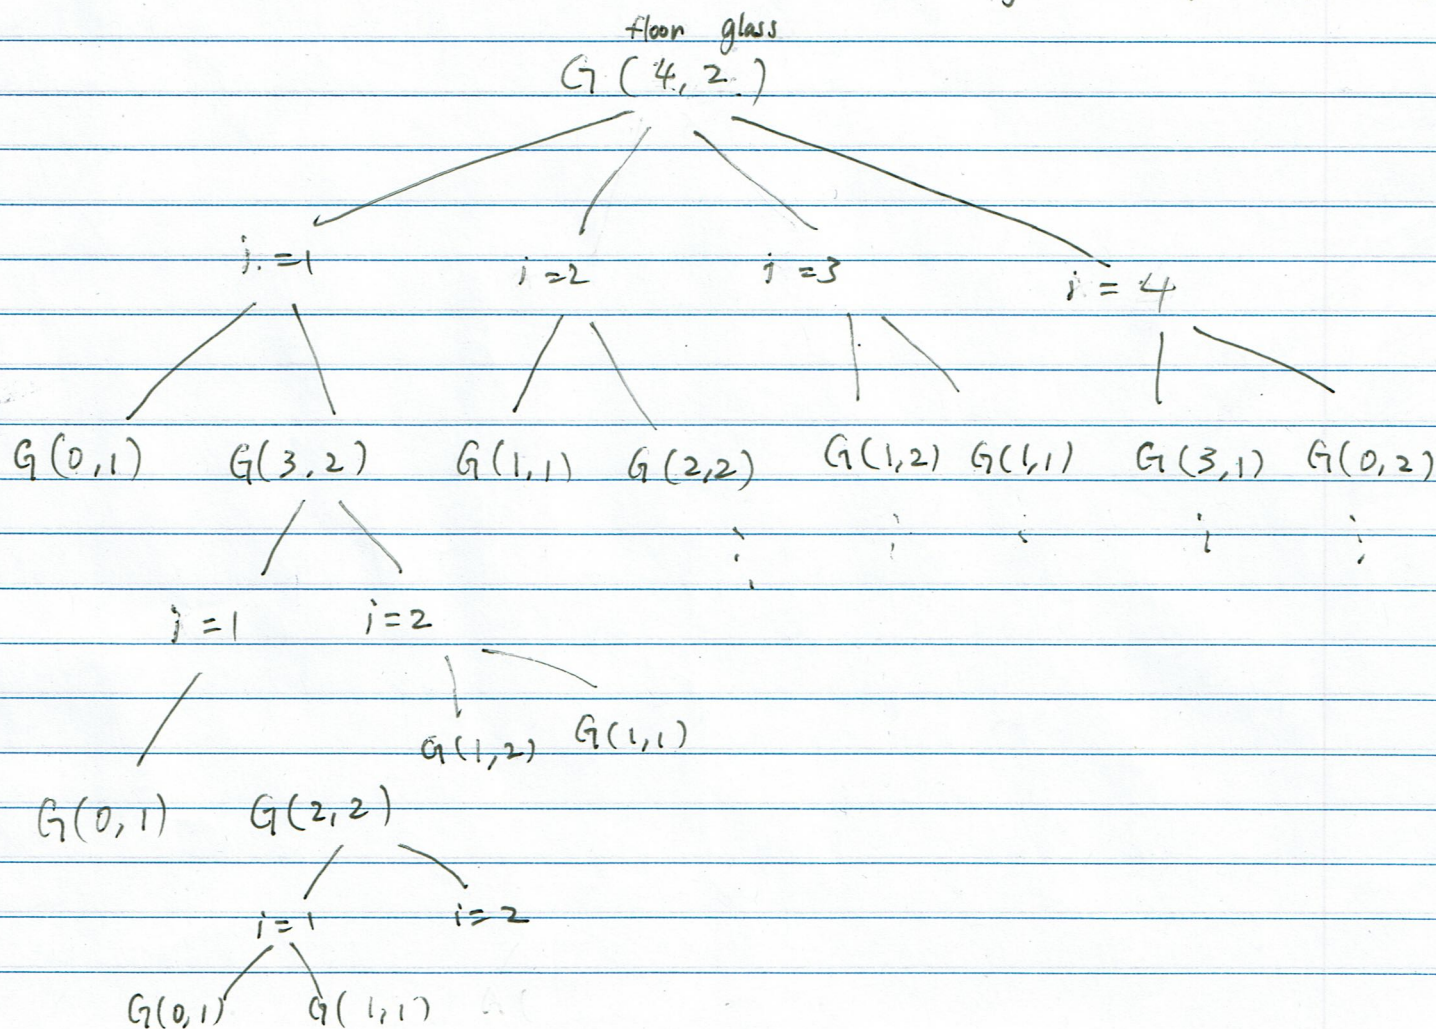 floor glass
G(4,2)
i=1 i=2 i=3 i=4
G(0,1) G(3,2) G(1,1) G(2,2) G(1,2) G(1,1) G(3,1) G(0,2)
i=1 i=2
G(1,2) G(1,1)
G(0,1) G(2,2)
i=1 i=2
G(0,1) G(1,1)